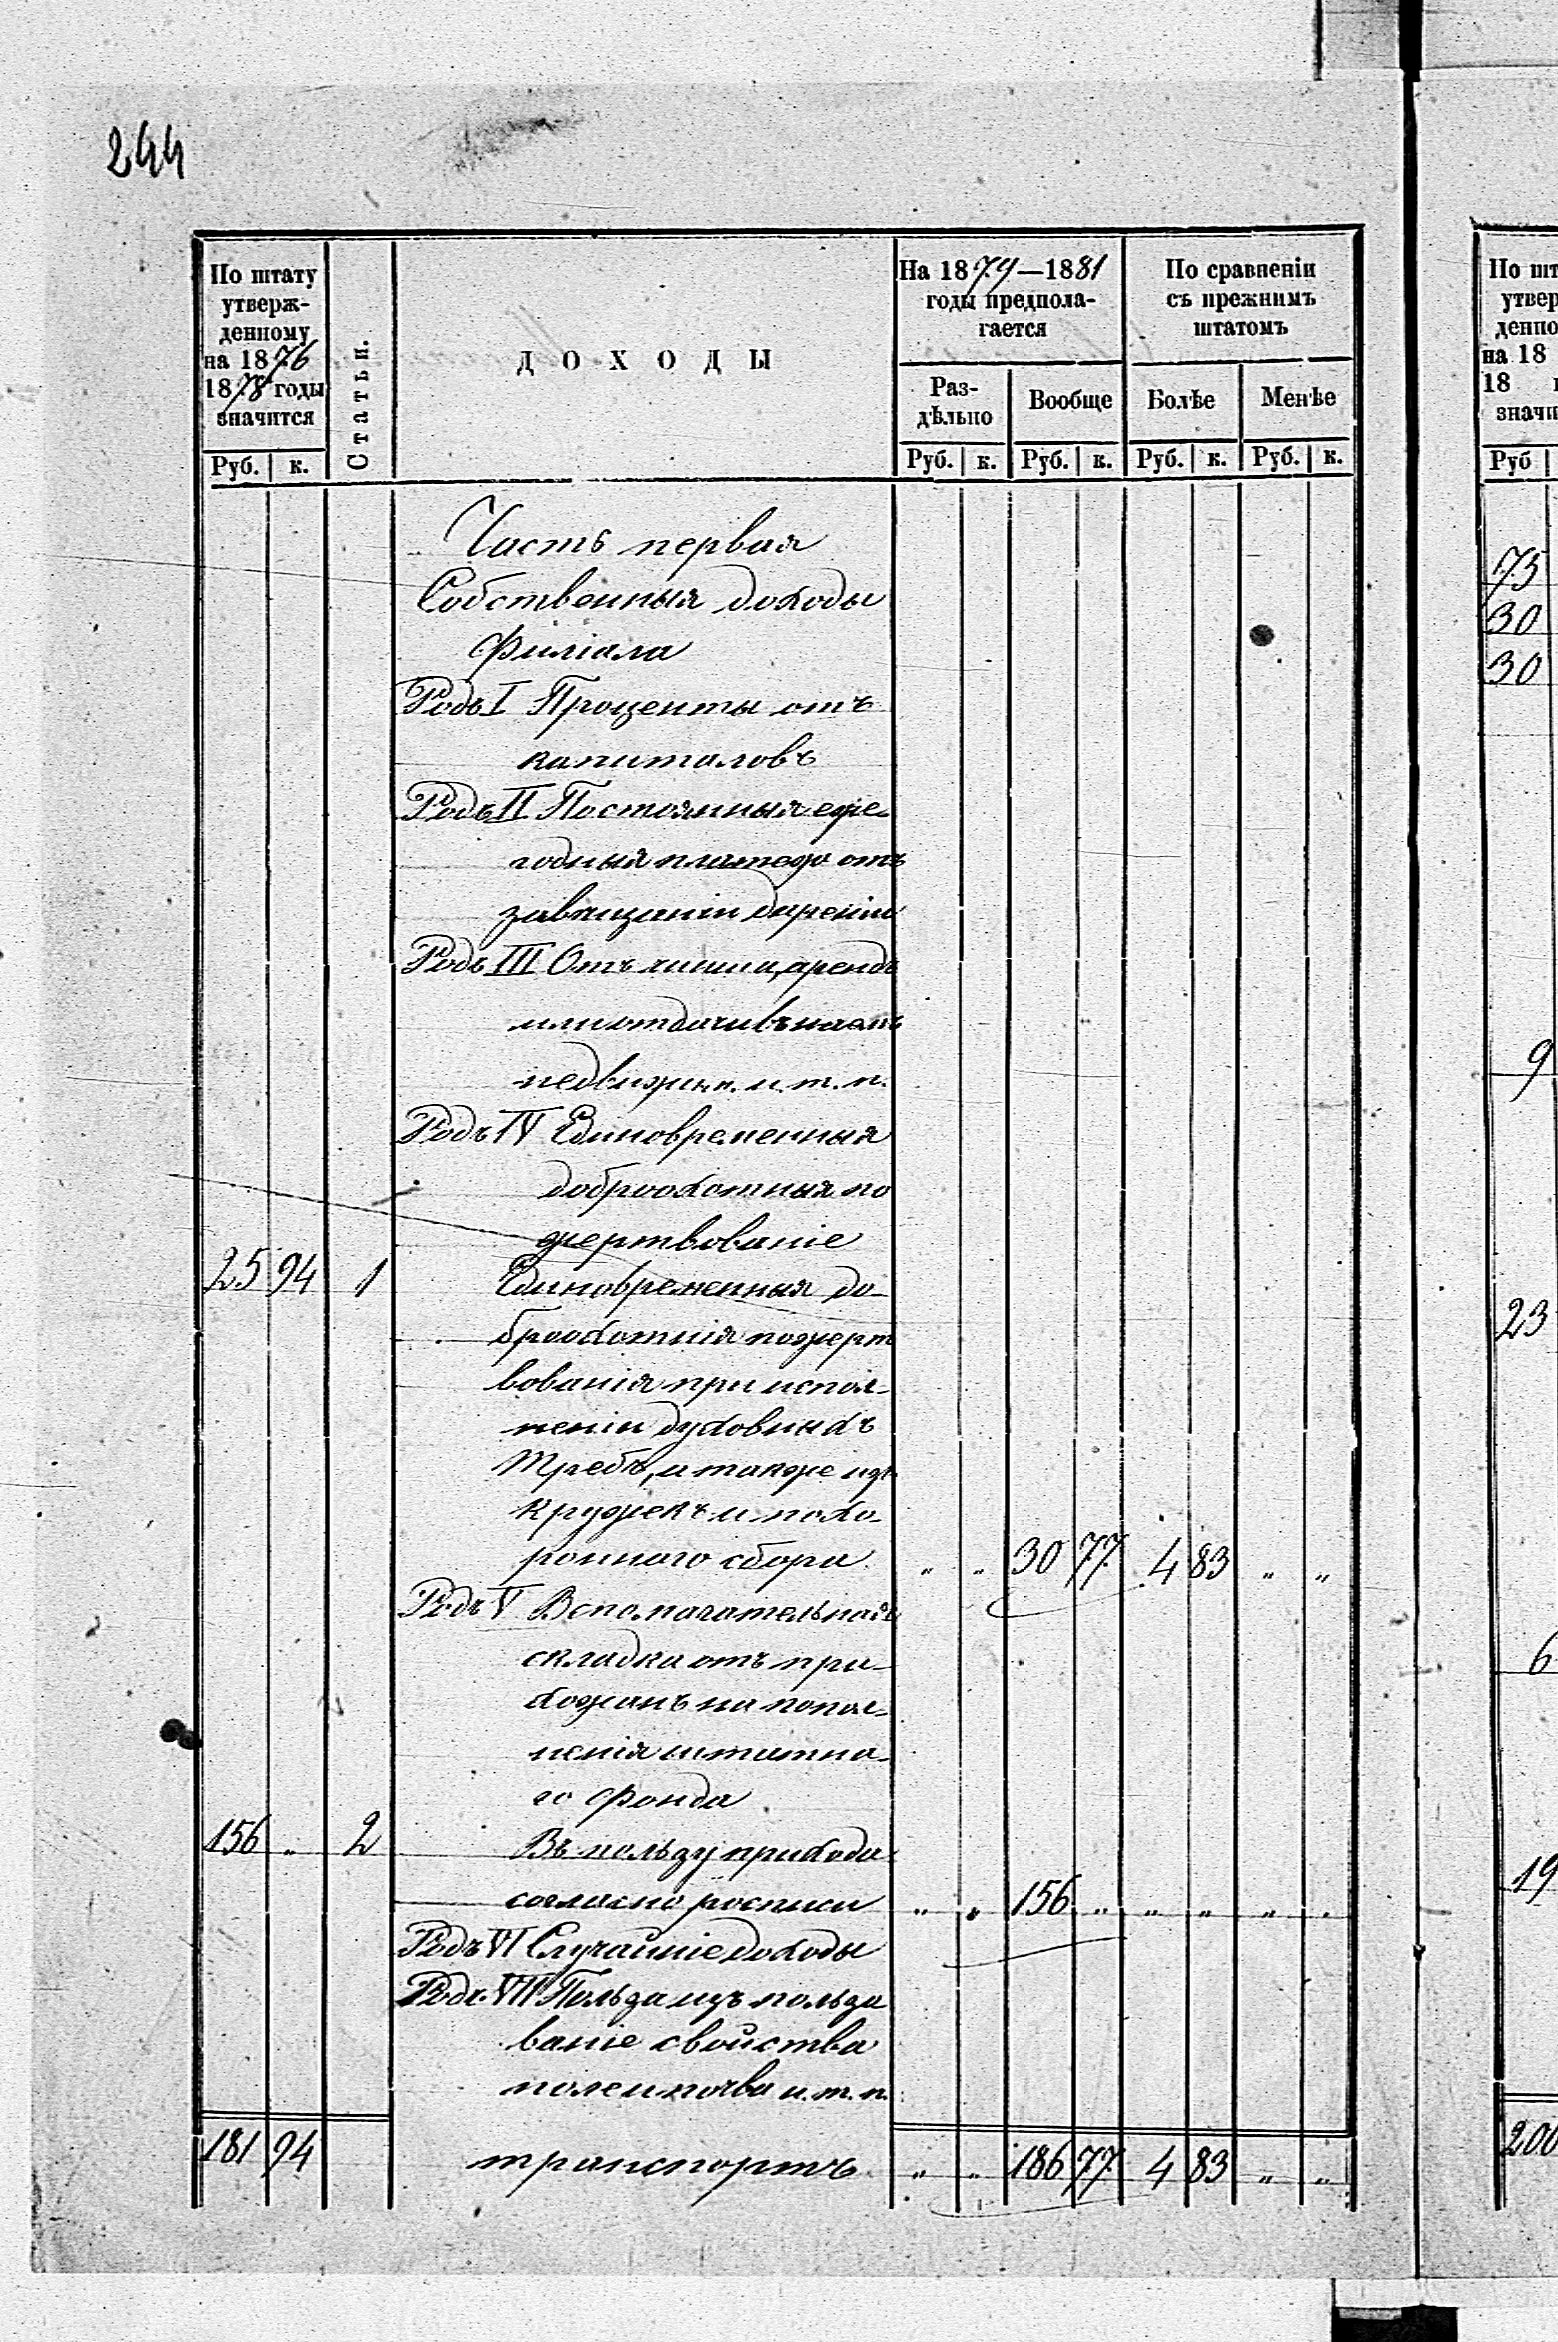 244
По штату
утверж-
денному
на 1876
1878 годы
значится
Руб. к.
Статьи.
ДОХОДЫ
На 1879—1881
годы предпола-
гается
Раз-
дѣльно
Вообще
Руб. к. Руб. к.
По сравненіи
съ прежнимъ
штатомъ
Болѣе
Менѣе
Руб. к. Руб. к.
Часть первая
Собственныя доходы
Филіала
Родъ I Проценты отъ
капиталовъ
Родъ II Постоянныя еже-
годныя платежи отъ
завещаніи дареніи
Родъ III Отъ чинша, арендъ
или отдачи въ наемъ
недвижим. и. т. п.
Родъ IV Единовременныя
доброохотныя по
жертвованіе
25 94 1 Единовременныя до-
броохотнія пожерт
вованія при испол-
неніи духовныхъ
Требъ, и также изъ
кружекъ и похо-
роннаго сбора „ „ 30 77 4 83 „ „
Родъ V Вспомагательная
складка отъ при-
хожанъ на попол-
ненія штатна-
го фонда
156 „ 2 Въ пользу прихода
согласно росписи „ „ 156 „ „ „ „ „
Родъ VI Случайніе доходы
Родъ VII Польза изъ пользо
ваніе свойства
полеи почва и. т. п.
181 94 транспортъ „ „ 186 77 4 83 „ „
По шт
утвер
денно
на 18
18
значи
Руб
75
30
30
9
23
6
19
200